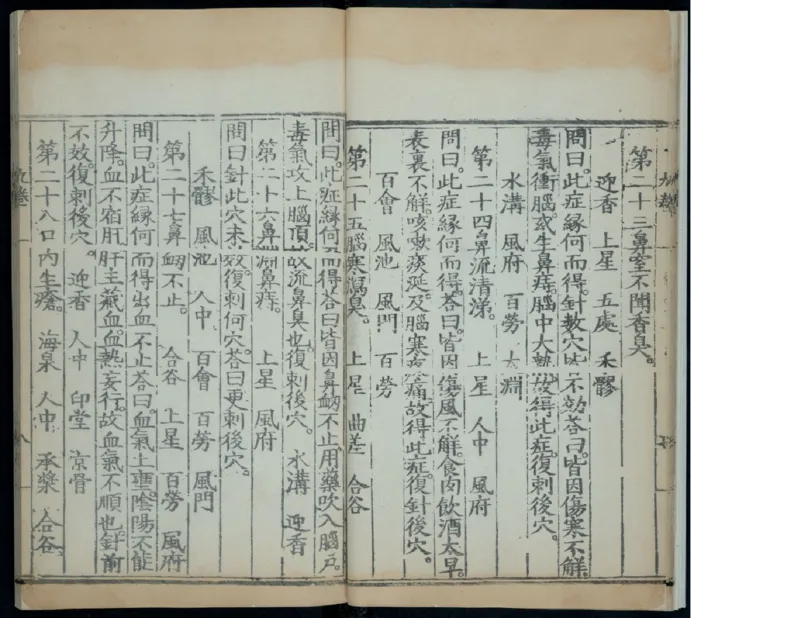 第二十三鼻窒不聞香臭。
迎香　上星　五處　禾髎
問曰。此症緣何而得。針數穴皆不効。答曰。皆因傷寒不解。
毒氣衝腦。或生鼻痔。腦中大熱。故得此症。復刺後穴。
水溝　風府　百勞　太淵
第二十四鼻流清涕。　上星　人中　風府
問曰。此症緣何而得。答曰。皆因傷風不解。食肉飲酒太早。
表裏不解。咳嗽痰涎。及腦寒疼痛。故得此症。復針後穴。
百會　風池　風門　百勞
第二十五腦寒瀉臭。　上星　曲差　合谷
問曰。此症緣何而得。答曰。皆因鼻衂不止。用藥吹入腦戶。
毒氣攻上腦頂。故流鼻臭也。復刺後穴。　水溝　迎香
第二十六鼻淵鼻痔。　上星　風府
問曰針此穴未效。復刺何穴。答曰更刺後穴。
禾髎　風池　人中　百會　百勞　風門
第二十七鼻衂不止。　合谷　上星　百勞　風府
問曰。此症緣何而得出血不止。答曰。血氣上壅。陰陽不能
升降。血不宿肝。肝主藏血。血熱妄行。故血氣不順也。針前
不效。復刺後穴。　迎香　人中　印堂　京骨
第二十八口內生瘡。　海泉　人中　承漿　合谷。
九卷
八